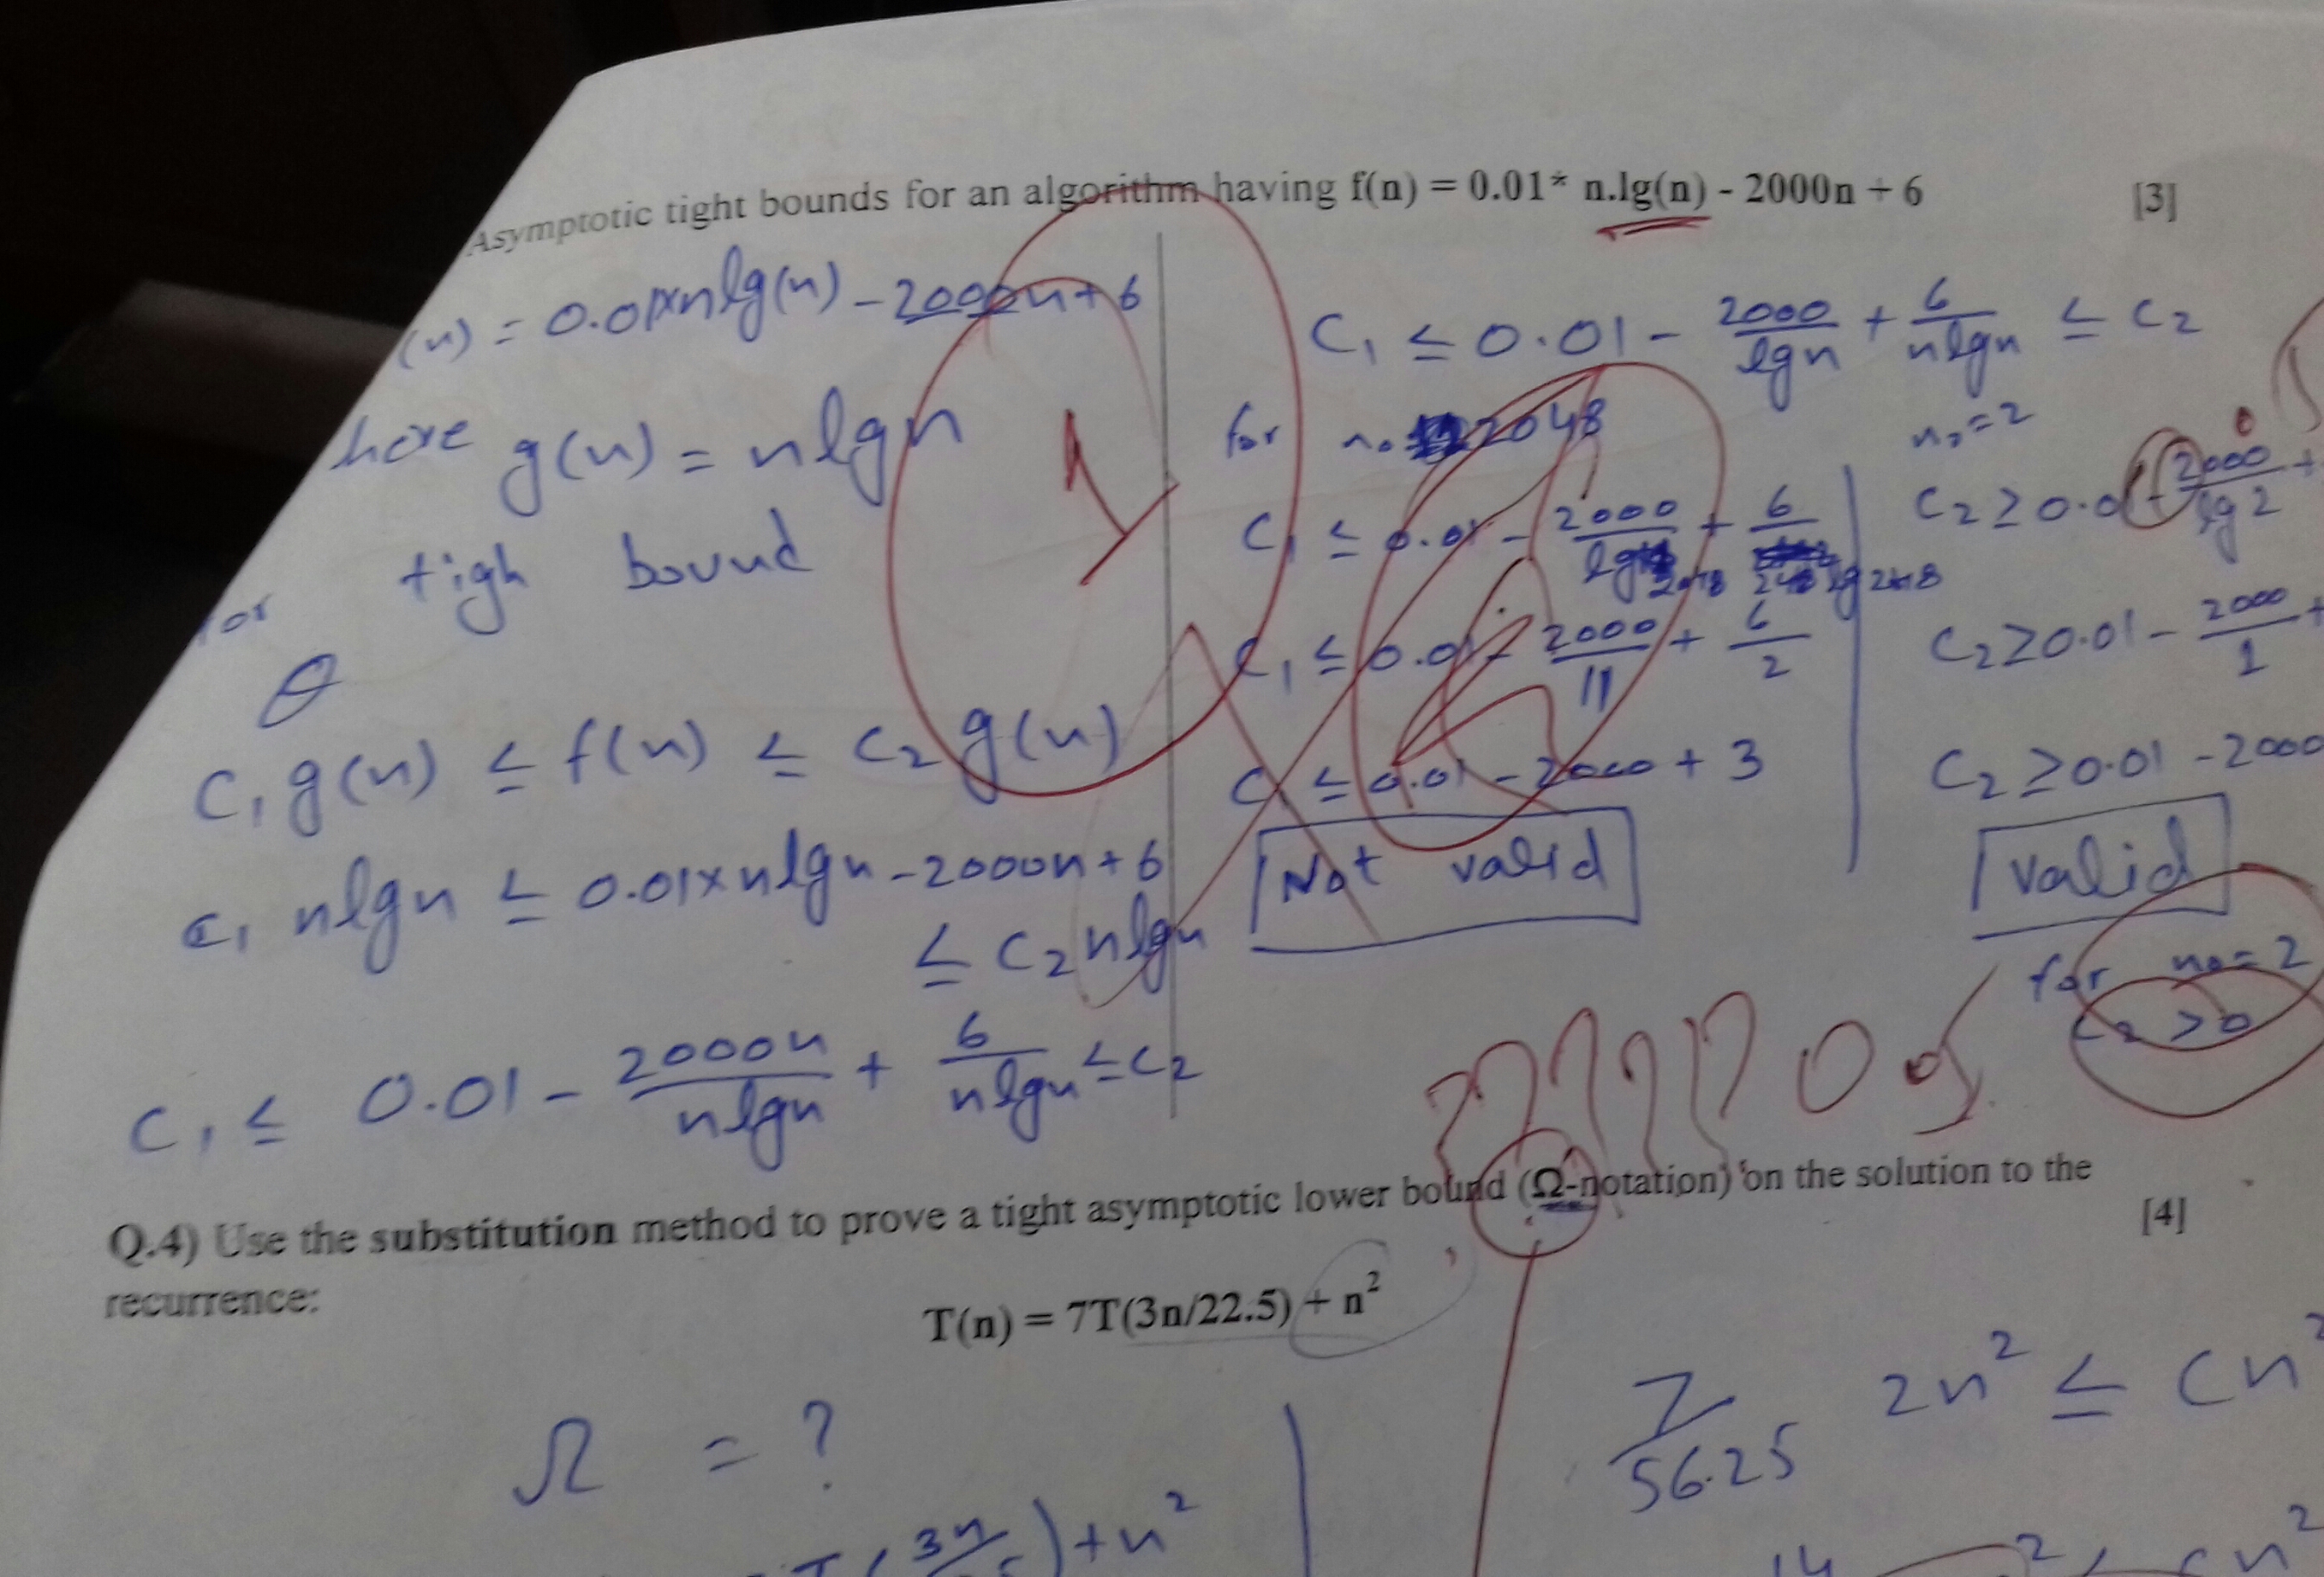 Asymptotic tight bounds for an algorithm having f(n) = 0.01* n.lg(n) - 2000n + 6 [3]
(n) = 0.01×nlg(n) - 2000n + 6
here g(n) = nlgn
for tigh bound
θ
C₁g(n) ≤ f(n) ≤ C₂g(n)
C₁ nlgn ≤ 0.01×nlgn - 2000n + 6
≤ C₂nlgn
C₁ ≤ 0.01 - 2000n/nlgn + 6/nlgn ≤ C₂
C₁ ≤ 0.01 - 2000/lgn + 6/nlgn ≤ C₂
for n₀ 2048
C₁ ≤ 0.01 - 2000/lg 2048 + 6/2048 lg 2048
C₁ ≤ 0.01 - 2000/11 + 6/2
C₁ ≤ 0.01 - 2000 + 3
Not valid
n₀=2
C₂ ≥ 0.01 - 2000/lg2 +
C₂ ≥ 0.01 - 2000/1 +
C₂ ≥ 0.01 - 2000
Valid
for n₀ = 2
C₂ > 0
Q.4) Use the substitution method to prove a tight asymptotic lower bound (Ω-notation) on the solution to the [4]
recurrence:
T(n) = 7T(3n/22.5) + n²
Ω = ?
3n ) + n²
7/56.25 2n² ≤ Cn²
14 n² ≤ cn²